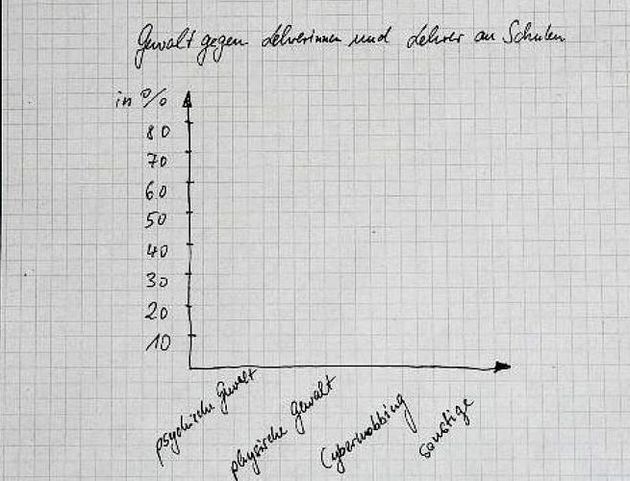 Gewalt gegen Lehrerinnen und Lehrer an Schulen
in %
80
70
60
50
40
30
20
10
psychische Gewalt
physische Gewalt
Cybermobbing
sonstige